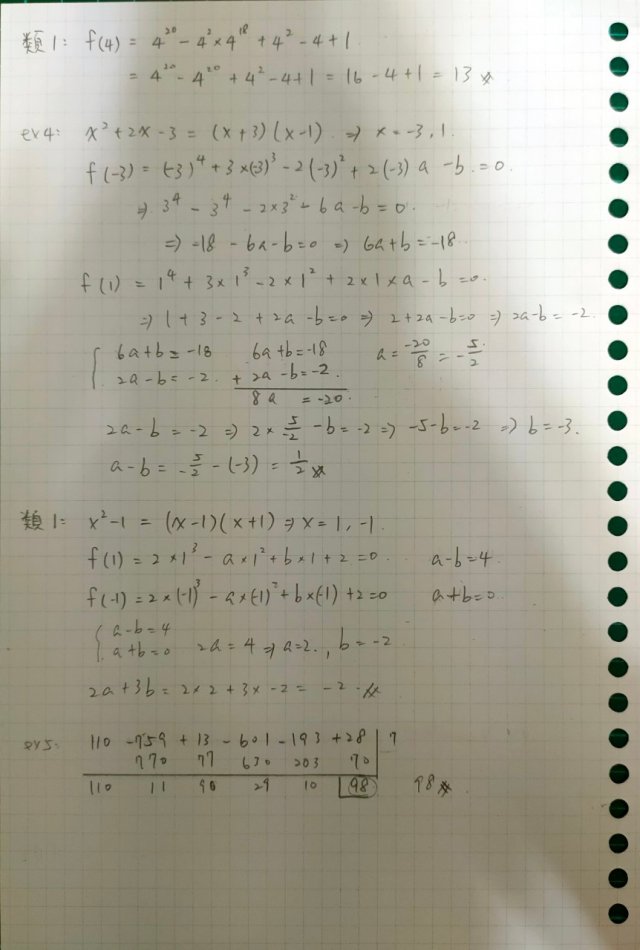 類1: f(4) = 4²⁰ - 4²×4¹⁸ + 4² - 4 + 1
= 4²⁰ - 4²⁰ + 4² - 4 + 1 = 16 - 4 + 1 = 13
ex4: x² + 2x - 3 = (x+3)(x-1) ⇒ x = -3, 1.
f(-3) = (-3)⁴ + 3×(-3)³ - 2(-3)² + 2(-3)a - b = 0.
⇒ 3⁴ - 3⁴ - 2×3² - 6a - b = 0.
⇒ -18 - 6a - b = 0 ⇒ 6a + b = -18.
f(1) = 1⁴ + 3×1³ - 2×1² + 2×1×a - b = 0.
⇒ 1 + 3 - 2 + 2a - b = 0 ⇒ 2 + 2a - b = 0 ⇒ 2a - b = -2.
{ 6a + b = -18 6a + b = -18 a = -20/8 = -5/2
2a - b = -2. + 2a - b = -2.
8a = -20.
2a - b = -2 ⇒ 2 × 5/-2 - b = -2 ⇒ -5 - b = -2 ⇒ b = -3.
a - b = -5/2 - (-3) = 1/2
類1: x² - 1 = (x-1)(x+1) ⇒ x = 1, -1.
f(1) = 2×1³ - a×1² + b×1 + 2 = 0. a - b = 4.
f(-1) = 2×(-1)³ - a×(-1)² + b×(-1) + 2 = 0 a + b = 0.
{ a - b = 4
a + b = 0 2a = 4 ⇒ a = 2., b = -2
2a + 3b = 2×2 + 3×-2 = -2.
ex5: 110 -759 + 13 - 601 - 193 + 28 | 7
770 77 630 203 70
110 11 90 29 10 98 98